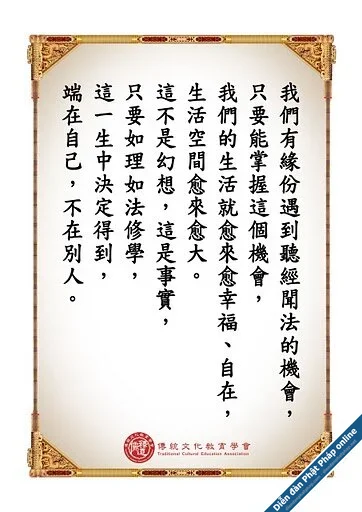 我們有緣份遇到聽經聞法的機會，
只要能掌握這個機會，
我們的生活就愈來愈幸福、自在，
生活空間愈來愈大。
這不是幻想，這是事實，
只要如理如法修學，
這一生中決定得到，
端在自己，不在別人。
傳統文化教育學會
Traditional Cultural Education Association
Diễn đàn Phật Pháp online